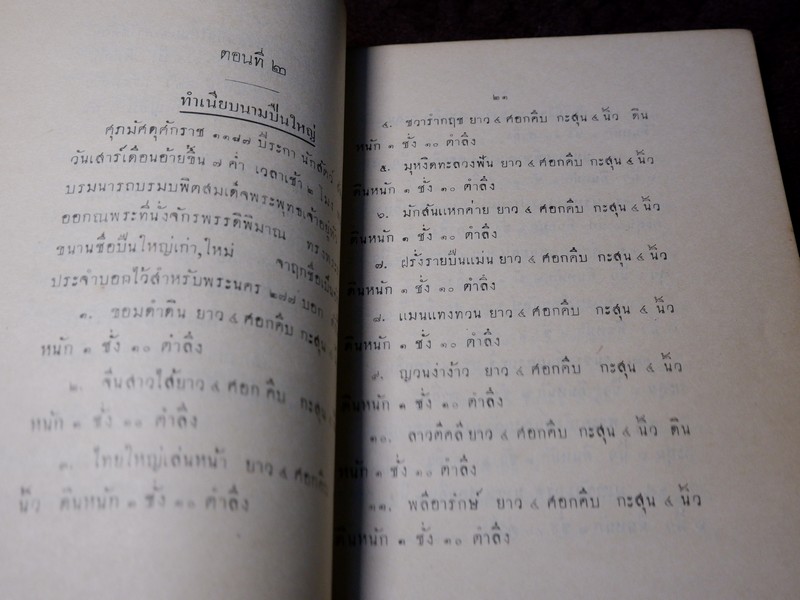 ตอนที่ ๒
ทำเนียบนามปืนใหญ่
ศุภมัศดุศักราช ๑๑๔๗ ปีระกา นักสัตว์
วันเสาร์เดือนอ้ายขึ้น ๗ ค่ำ เวลาเช้า ๒ โมง
บรมนารถบรมบพิตสมเด็จพระพุทธเจ้าอยู่หัว
ออกณพระที่นั่งจักรพรรดิพิมาณ
ขนานชื่อปืนใหญ่เก่า,ใหม่ จาฤกชื่อ
ประจำบอกไว้สำหรับพระนคร ๒๗๗ บอก
๑. ขอมดำดิน ยาว ๔ ศอกคืบ กะสุน ๔
หนัก ๑ ชั่ง ๑๐ ตำลึง
๒. จีนสาวไส้ยาว ๔ ศอก คืบ
หนัก ๑ ชั่ง ๑๐ ตำลึง
๓. ไทยใหญ่เล่นหน้า ยาว ๔ ศอกคืบ
นิ้ว ดินหนัก ๑ ชั่ง ๑๐ ตำลึง
๒๑
๔. ชวารำกฤช ยาว ๔ ศอกคืบ กะสุน ๔ นิ้ว ดิน
หนัก ๑ ชั่ง ๑๐ ตำลึง
๕. มุหงิดทะลวงฟัน ยาว ๔ ศอกคืบ กะสุน ๔ นิ้ว
ดินหนัก ๑ ชั่ง ๑๐ ตำลึง
๖. มักสันแหกค่าย ยาว ๔ ศอกคืบ กะสุน ๔ นิ้ว
ดินหนัก ๑ ชั่ง ๑๐ ตำลึง
๗. ฝรั่งรายปืนแม่น ยาว ๔ ศอกคืบ กะสุน ๔ นิ้ว
ดินหนัก ๑ ชั่ง ๑๐ ตำลึง
๘. แมนแทงทวน ยาว ๔ ศอกคืบ กะสุน ๔ นิ้ว
ดินหนัก ๑ ชั่ง ๑๐ ตำลึง
๙. ญวนง่าง้าว ยาว ๔ ศอกคืบ กะสุน ๔ นิ้ว
ดินหนัก ๑ ชั่ง ๑๐ ตำลึง
๑๐. ลาวตีคลี ยาว ๔ ศอกคืบ กะสุน ๔ นิ้ว ดิน
หนัก ๑ ชั่ง ๑๐ ตำลึง
๑๑. พลีอารักษ์ ยาว ๔ ศอกคืบ กะสุน ๔ นิ้ว
ดินหนัก ๑ ชั่ง ๑๐ ตำลึง